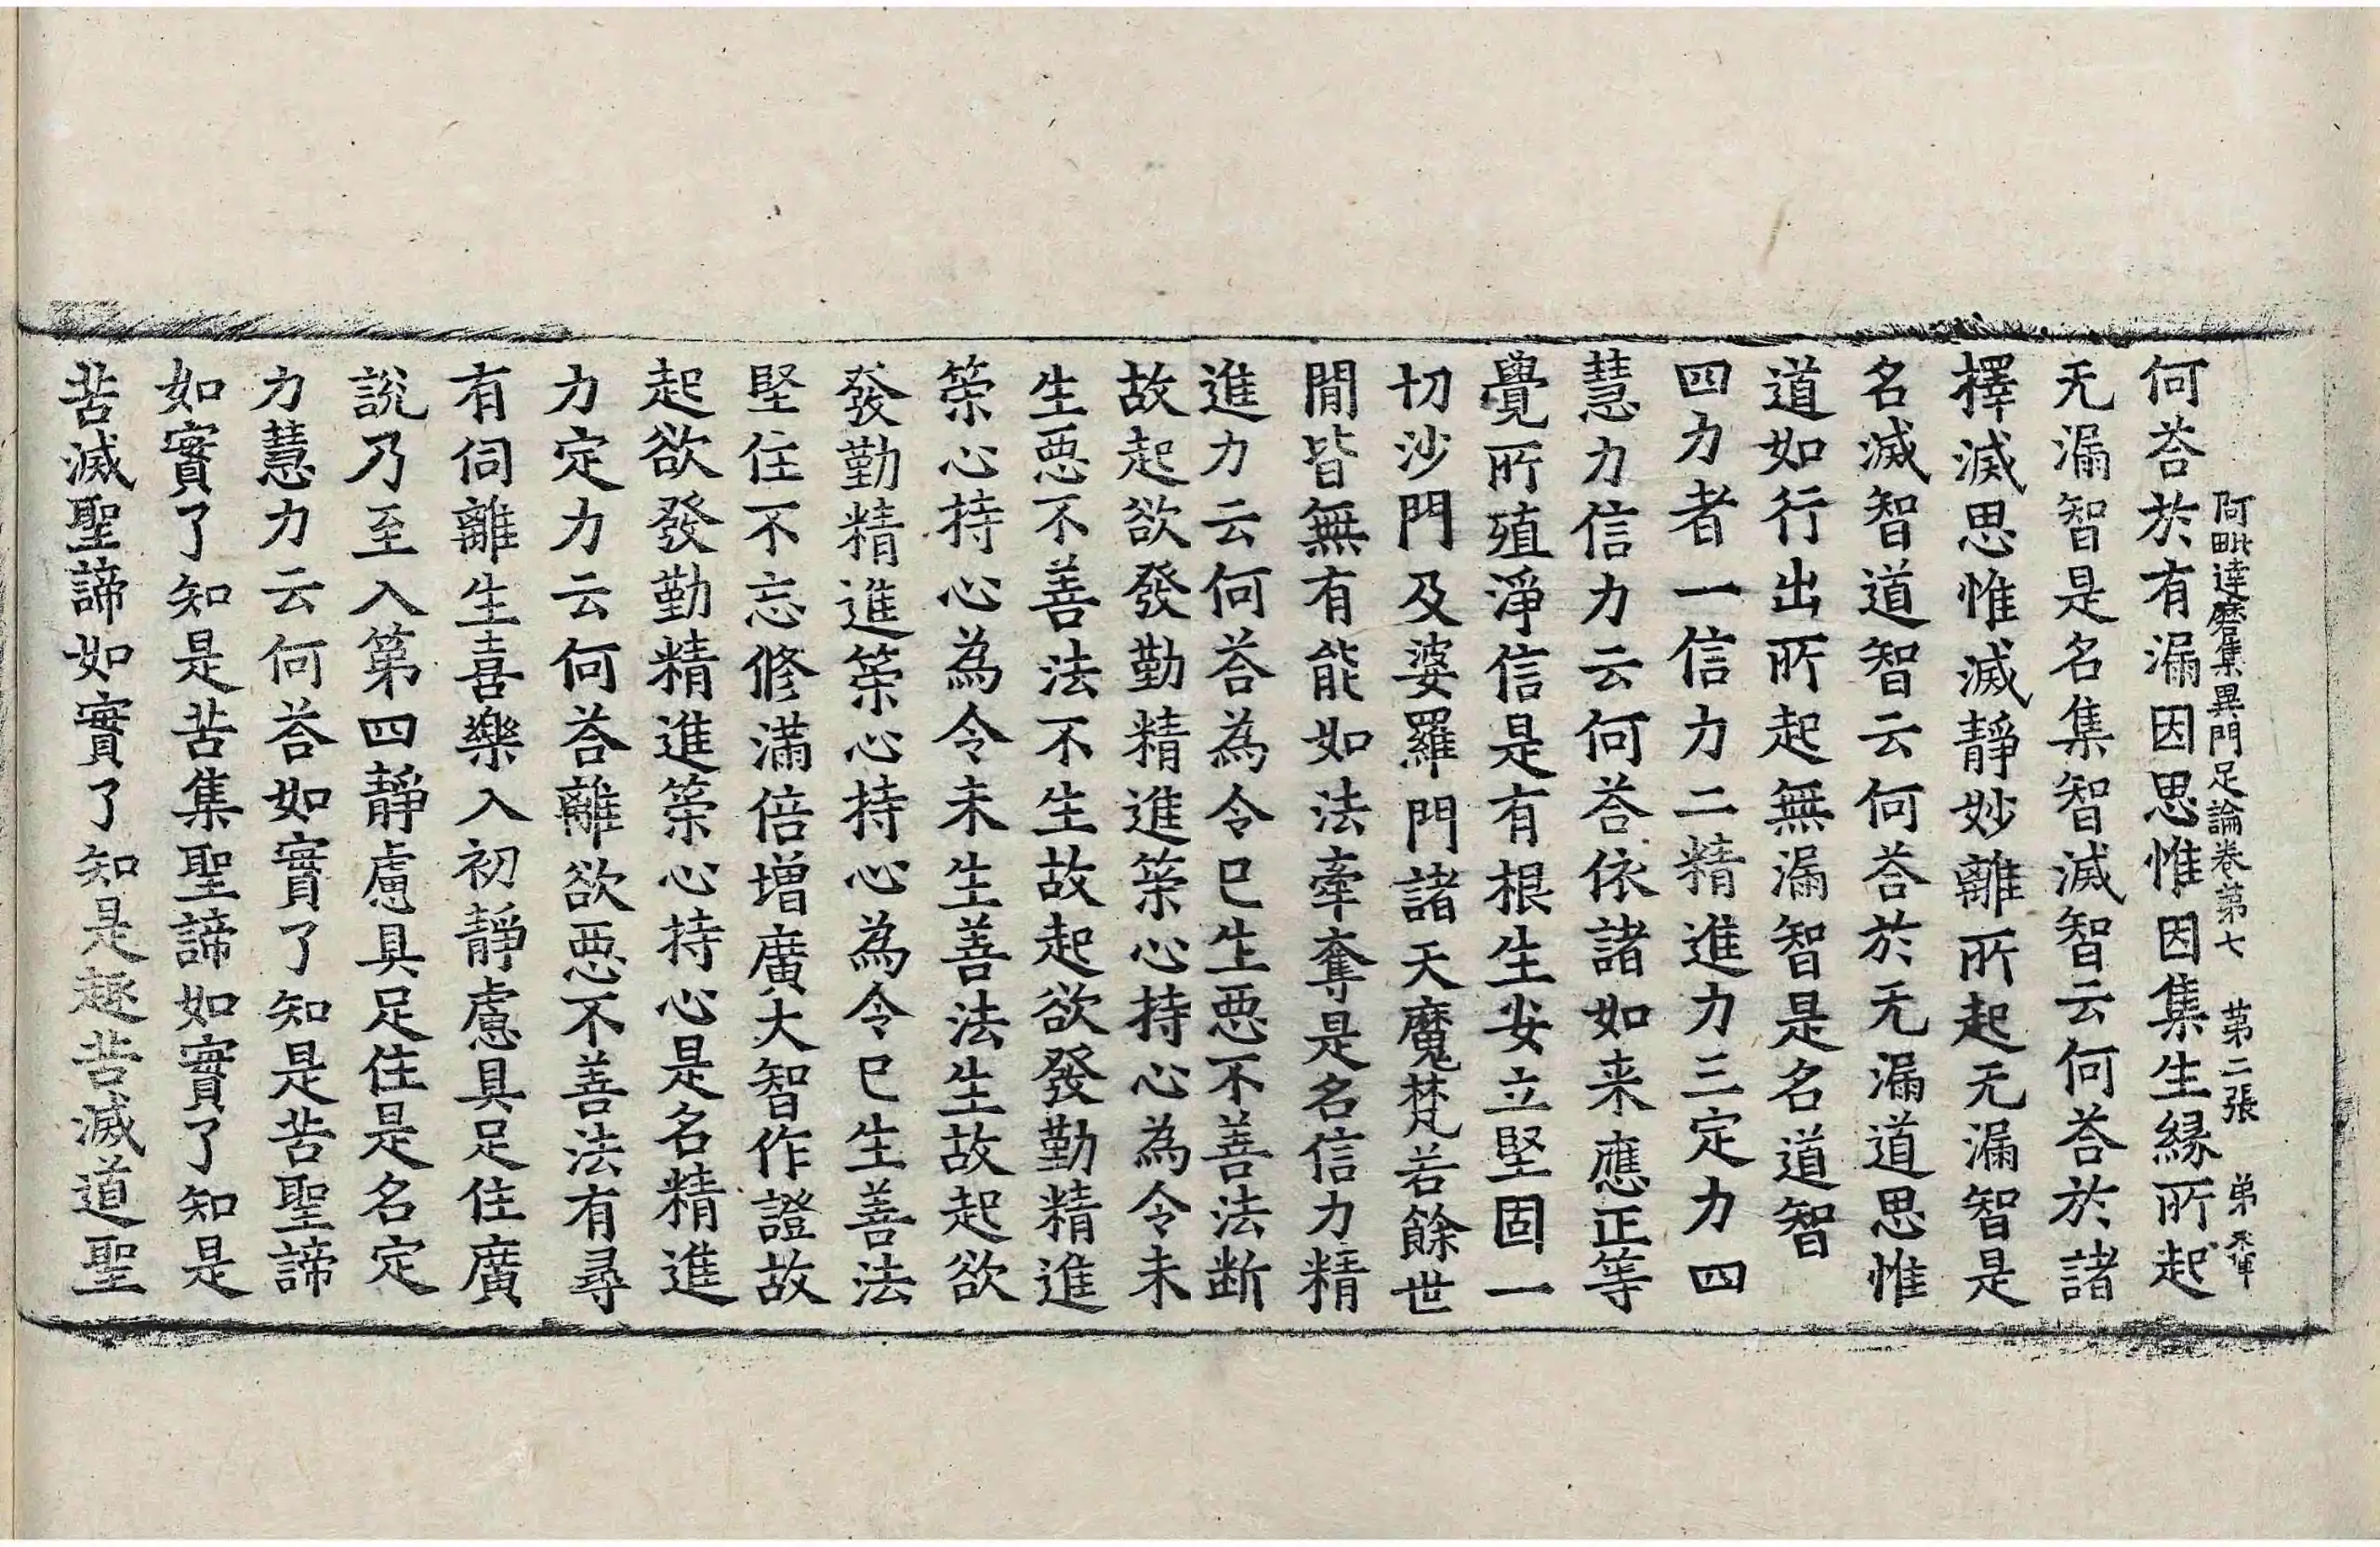 阿毗達磨集異門足論卷第七 第二張 弟
何荅於有漏因思惟因集生緣所起
无漏智是名集智滅智云何荅於諸
擇滅思惟滅靜妙離所起无漏智是
名滅智道智云何荅於无漏道思惟
道如行出所起無漏智是名道智
四力者一信力二精進力三定力四
慧力信力云何荅依諸如来應正等
覺所殖淨信是有根生安立堅固一
切沙門及婆羅門諸天魔梵若餘世
閒皆無有能如法牽奪是名信力精
進力云何荅為令已生悪不善法断
故起欲發勤精進策心持心為令未
生悪不善法不生故起欲發勤精進
策心持心為令未生善法生故起欲
發勤精進策心持心為令已生善法
堅住不忘修滿倍增廣大智作證故
起欲發勤精進策心持心是名精進
力定力云何荅離欲悪不善法有尋
有伺離生喜樂入初靜慮具足住廣
說乃至入第四靜慮具足住是名定
力慧力云何荅如實了知是苦聖諦
如實了知是苦集聖諦如實了知是
苦滅聖諦如實了知是趣苦滅道聖